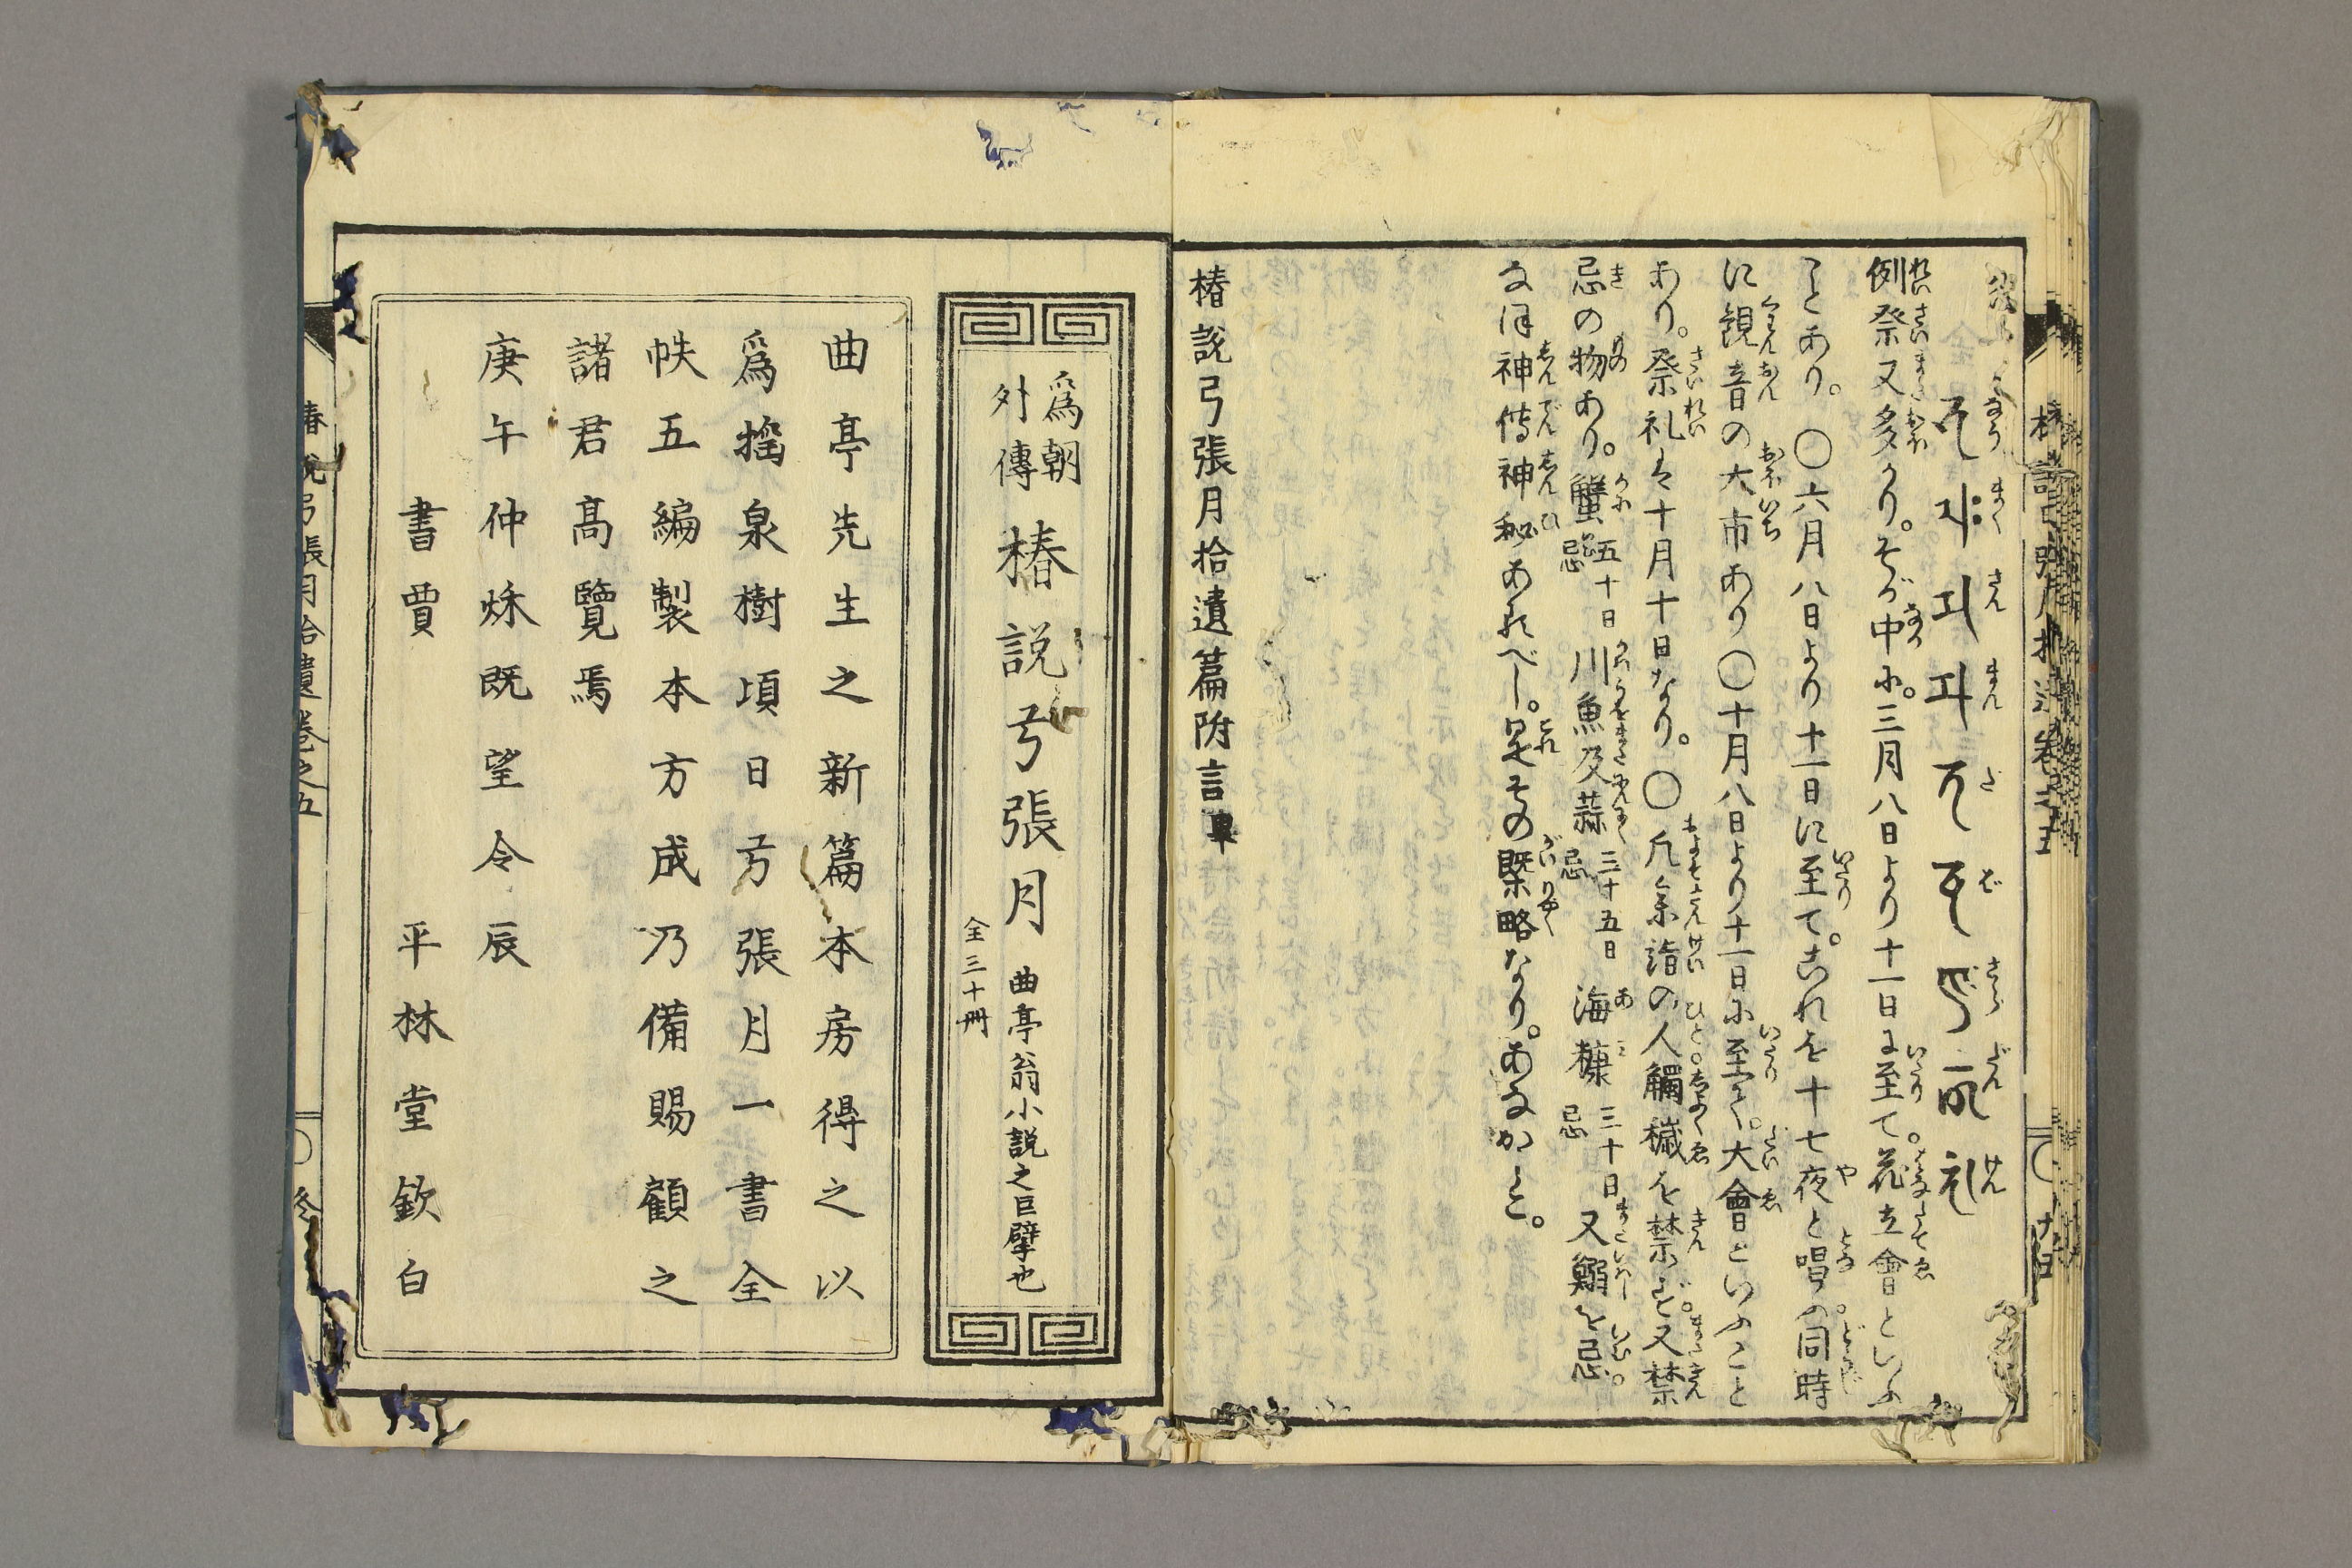 例祭又多かり。そが中に。三月八日より十一日に至て。花立會といふ
ことあり。〇六月八日より十一日に至て。これを十七夜と唱ふ。同時
に観音の大市あり〇十月八日より十一日に至る。大會といふこと
あり。祭礼は十月十日なり。〇凡参詣の人觸穢を禁ず。又禁
忌の物あり。蟹五十日忌川魚及蒜三十五日忌海糠三十日忌又鰯を忌。
なほ神傳神秘あるべし。是その槩略なり。あなかしこ。
椿説弓張月拾遺篇附言畢
爲朝外傳 椿説弓張月 曲亭翁小説之巨擘也
全三十冊
曲亭先生之新篇本房得之以
爲搖泉樹頃日弓張月一書全
帙五編製本方成乃備賜顧之
諸君高覽焉
庚午仲秌既望令辰
書賈 平林堂欽白
椿説弓張月拾遺巻之五